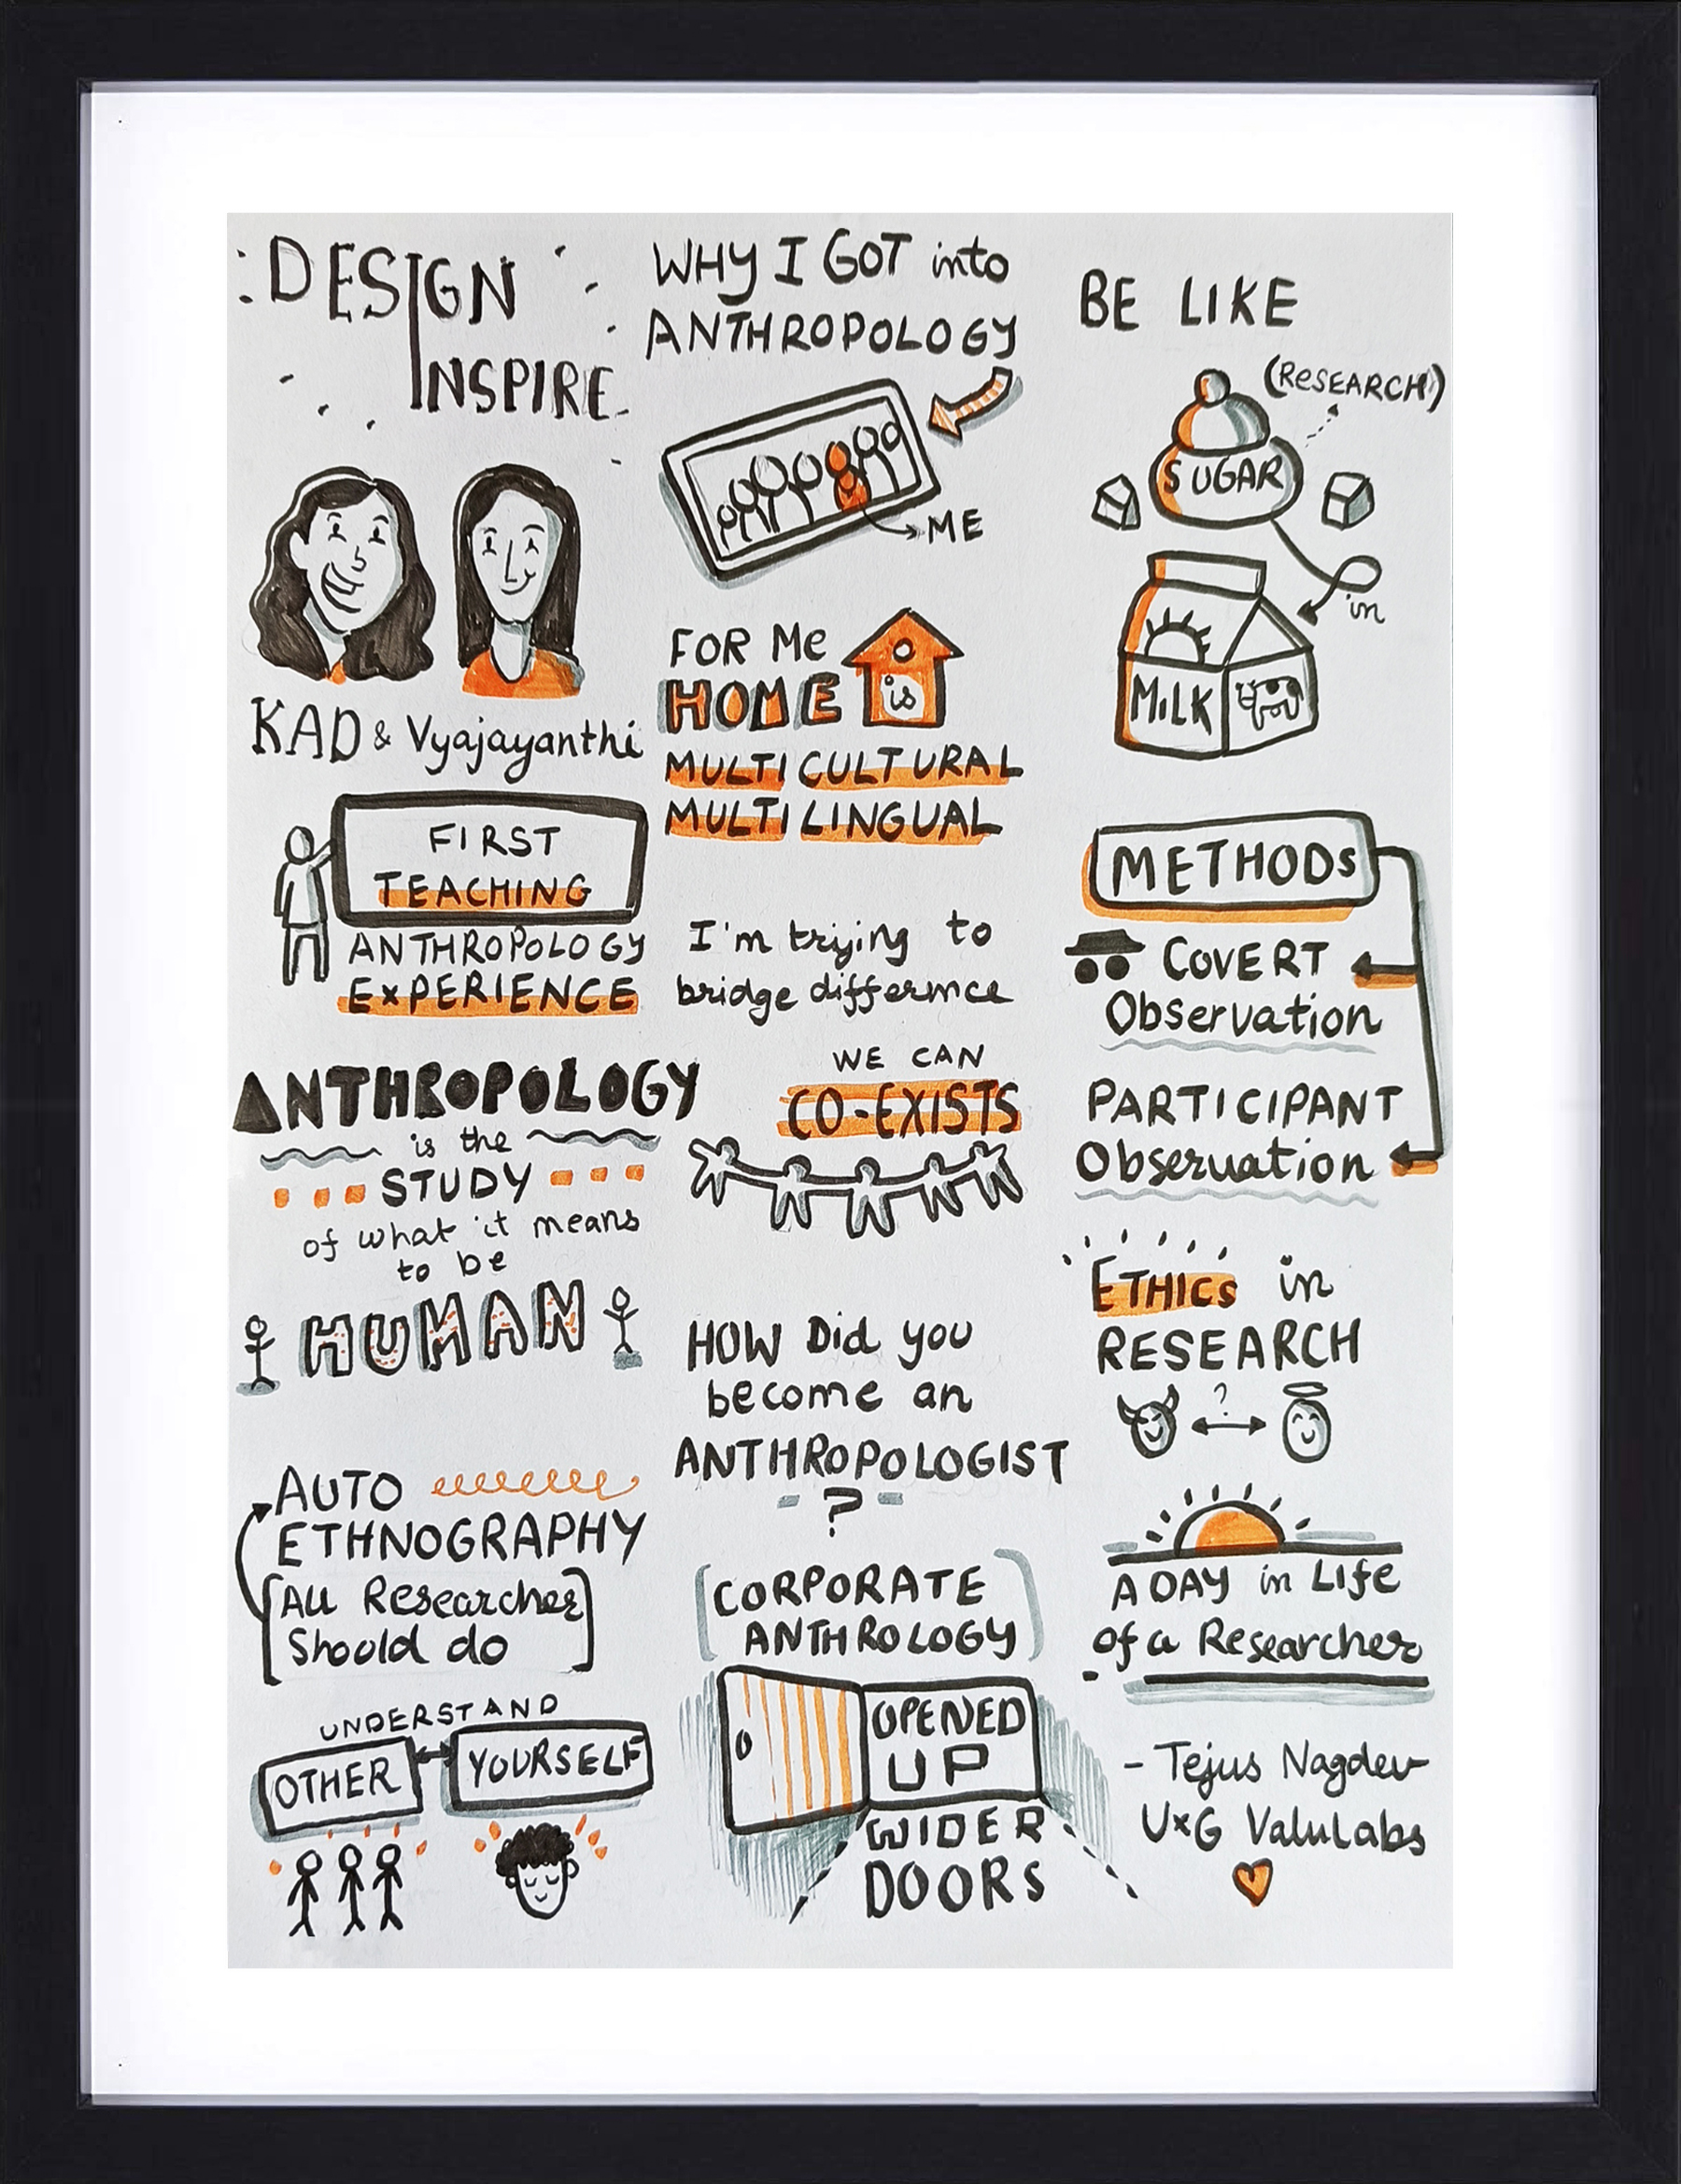 DESIGN
INSPIRE
KAD & Vyajayanthi
FIRST
TEACHING
ANTHROPOLOGY
EXPERIENCE
ANTHROPOLOGY
is the
STUDY
of what it means
to be
HUMAN
AUTO
ETHNOGRAPHY
[All Researcher
Should do]
UNDERSTAND
OTHER YOURSELF
WHY I GOT into
ANTHROPOLOGY
ME
FOR Me
HOME is
MULTICULTURAL
MULTILINGUAL
I'm trying to
bridge differnce
WE CAN
CO-EXISTS
HOW Did you
become an
ANTHROPOLOGIST
- ? -
[CORPORATE
ANTHROLOGY]
OPENED
UP
WIDER
DOORS
BE LIKE
(RESEARCH)
SUGAR
in
MILK
METHODS
COVERT
Observation
PARTICIPANT
Observation
ETHICS in
RESEARCH
?
A DAY in Life
of a Researcher
- Tejus Nagdev
UxG ValuLabs